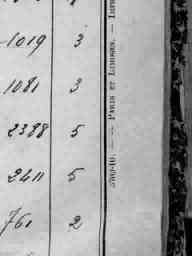 1019 3
1081 3
2388 5
2411 5
761 2
5769-10. — PARIS ET LIMOGES. —